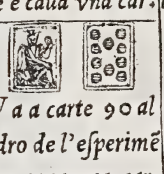 e caua vna car.
V a a carte 90 al
dro de l'eſperimē